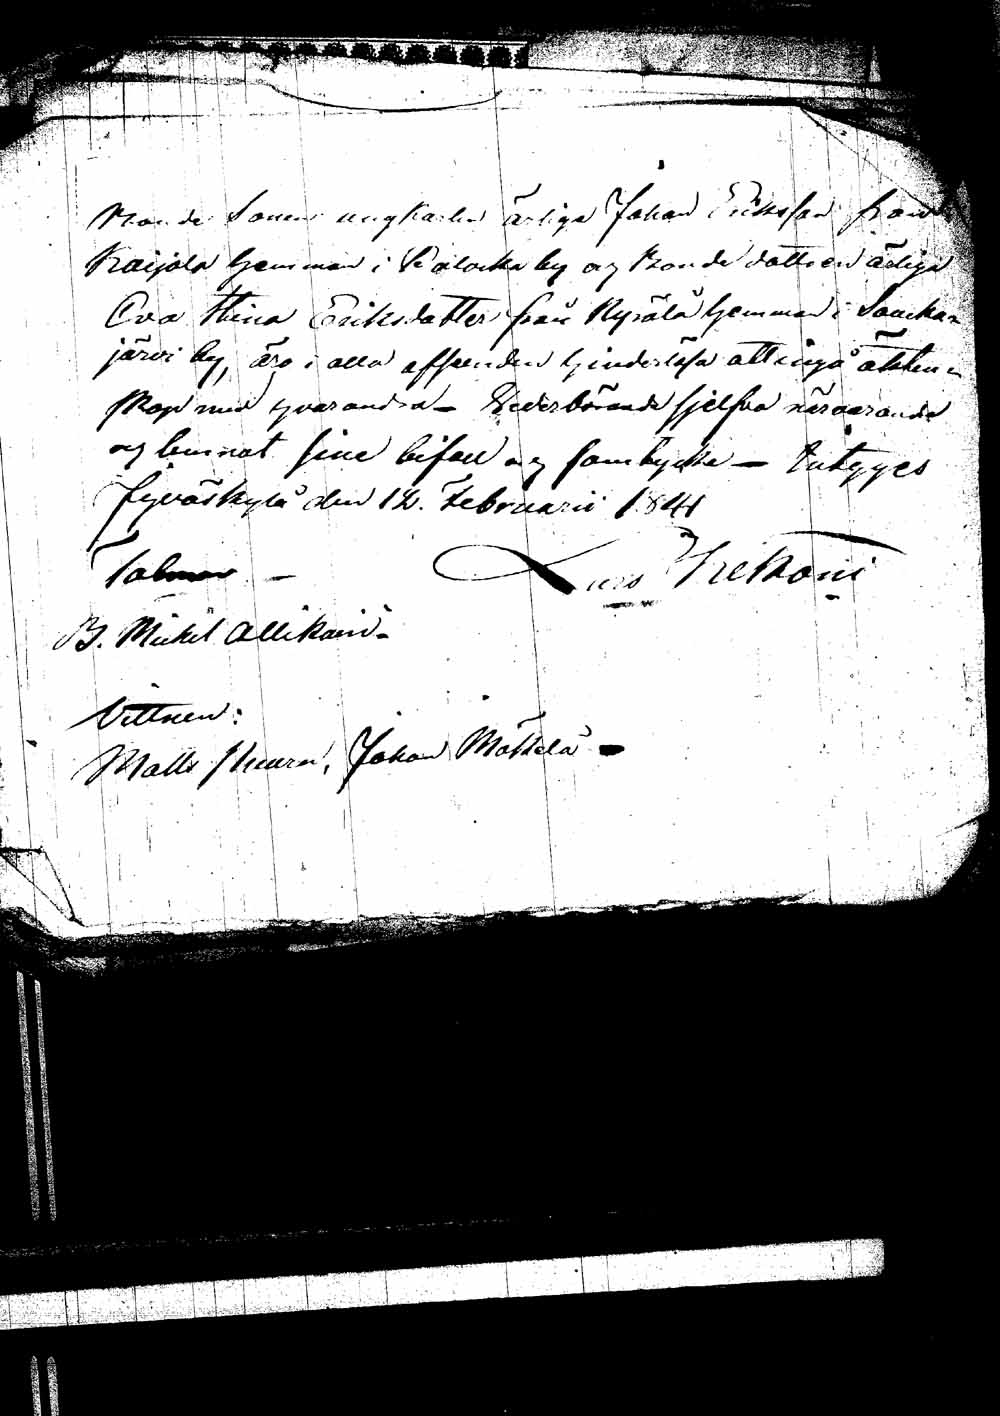 Bonde Sonen ungkarlen ärliga Johan Eriksson från
Kaijala hemman i Palocka by og Bonde dottren ärliga
Eva Stina Eriksdotter från Rysälä hemman i Saucka=
järvi by, äro i alla afseenden hinderlösa att ingå äkten=
skap med hvarandra – Vederbörande sjelfva närvarande
og lemnat sine bifall og samtycke – Intygges
Jyväskylä den 12. Februarii 1841
Talman – Lars
B. Mickel Allikain–
Vittnen:
Matts Johan Möttelä –